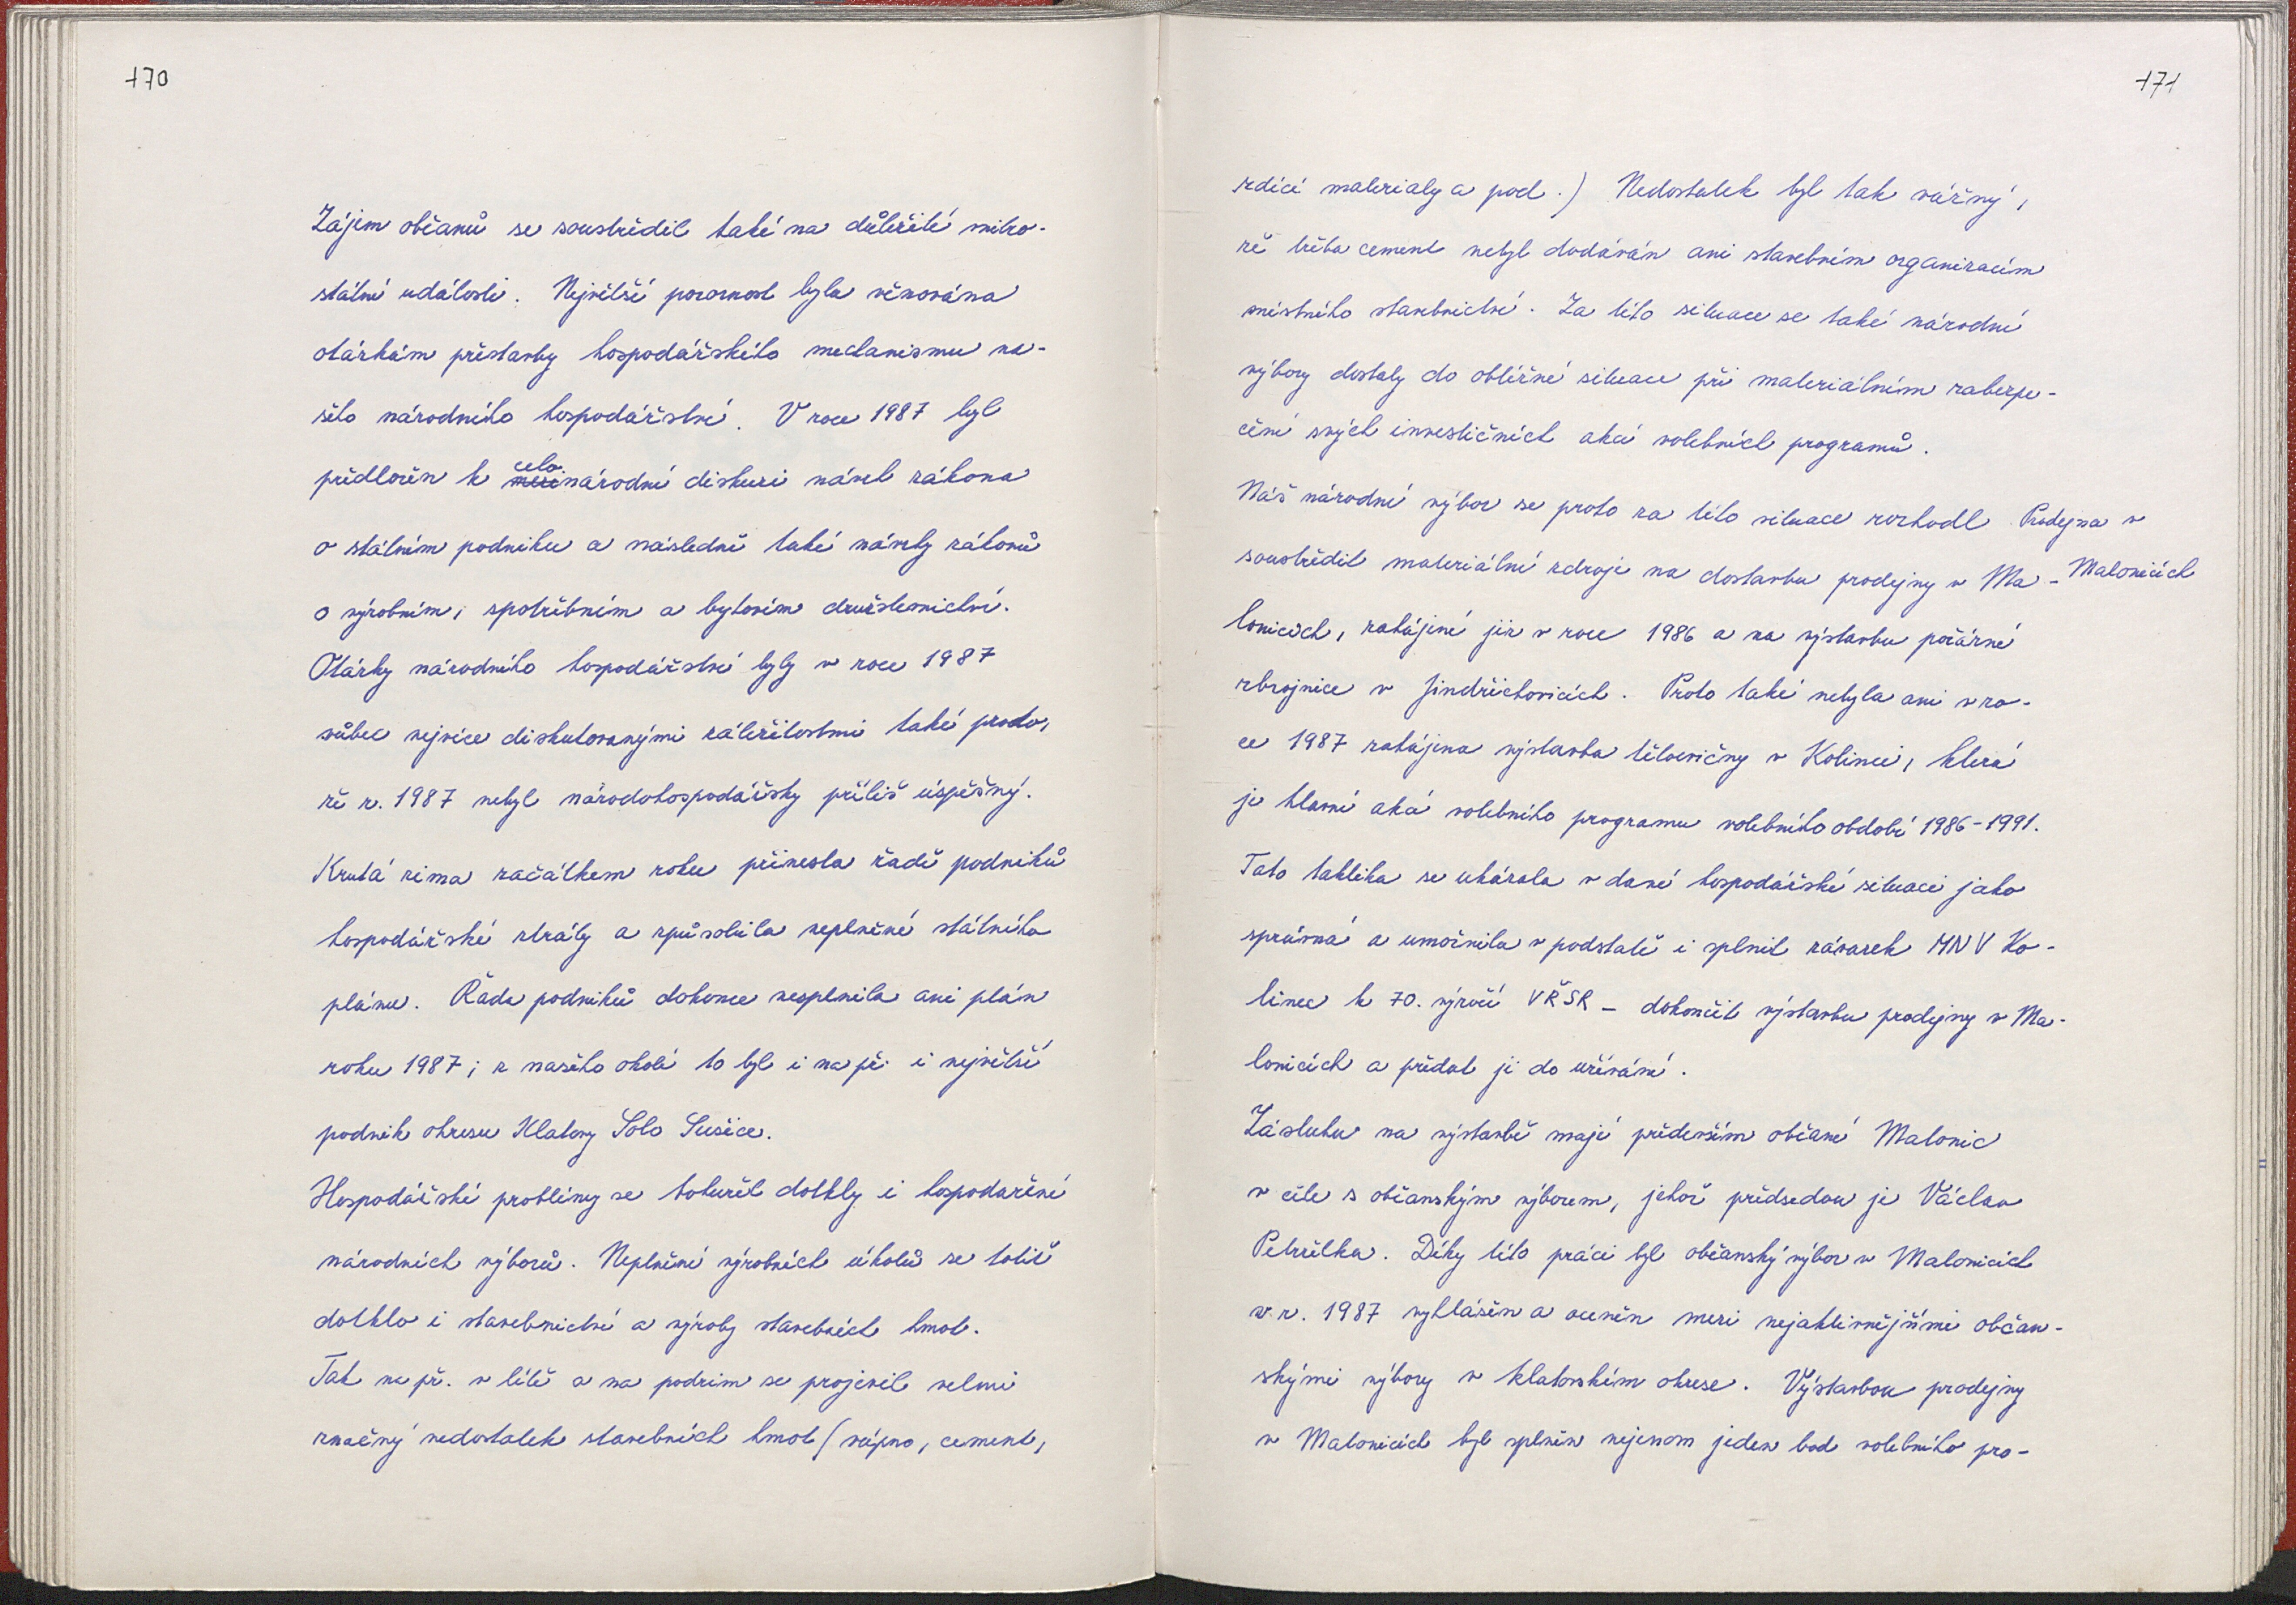 170
Zájem občanů se soustředil také na důležité vnitro-
státní události. Největší pozornost byla věnována
otázkám přestavby hospodářského mechanismu na-
šeho národního hospodářství. V roce 1987 byl
předložen k mezi celonárodní diskuzi návrh zákona
o státním podniku a následně také návrhy zákonů
o výrobním, spotřebním a bytovém družstevnictví.
Otázky národního hospodářství byly v roce 1987
vůbec nejvíce diskutovanými záležitostmi také proto,
že r. 1987 nebyl národohospodářsky příliš úspěšný.
Krutá zima začátkem roku přinesla řadě podniků
hospodářské ztráty a způsobila neplnění státního
plánu. Řada podniků dokonce nesplnila ani plán
roku 1987; z našeho okolí to byl i např. i největší
podnik okresu Klatovy Solo Sušice.
Hospodářské problémy se bohužel dotkly i hospodaření
národních výborů. Neplnění výrobních úkolů se totiž
dotklo i stavebnictví a výroby stavebních hmot.
Tak např. v létě a na podzim se projevil velmi
značný nedostatek stavebních hmot (vápno, cement,
171
zdící materialy a pod.) Nedostatek byl tak vážný,
že třeba cement nebyl dodáván ani stavebním organizacím
místního stavebnictví. Za této situace se také národní
výbory dostaly do obtížné situace při materiálním zabezpe-
čení svých investičních akcí volebních programů.
Náš národní výbor se proto za této situace rozhodl
soustředit materiální zdroje na dostavbu prodejny v Ma-
Prodejna v
Malonicích
lonicích, zahájené již v roce 1986 a na výstavbu požární
zbrojnice v Jindřichovicích. Proto také nebyla ani v ro-
ce 1987 zahájena výstavba tělocvičny v Kolinci, která
je hlavní akcí volebního programu volebního období 1986-1991.
Tato taktika se ukázala v dané hospodářské situaci jako
správná a umožnila v podstatě i splnit závazek MNV Ko-
linec k 70. výročí VŘSR - dokončit výstavbu prodejny v Ma-
lonicích a předat ji do užívání.
Zásluhu na výstavbě mají především občané Malonic
v čele s občanským výborem, jehož předsedou je Václav
Petrželka. Díky této práci byl občanský výbor v Malonicích
v r. 1987 vyhlášen a oceněn mezi nejaktivnějšími občan-
skými výbory v klatovském okrese. Výstavbou prodejny
v Malonicích byl splněn nejenom jeden bod volebního pro-